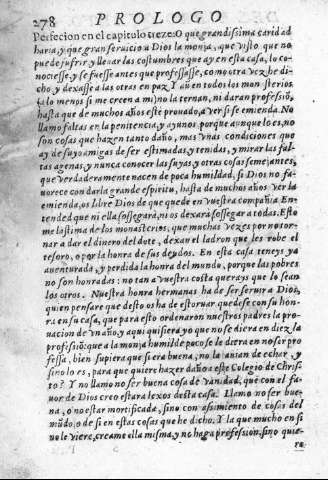 278 PROLOGO
Perfecion en el capitulo treze: O que grandissima caridad
haria, y que gran seruicio a Dios la monja, que visto que no
puede sufrir y lleuar las costumbres que ay en esta casa, lo co-
nociesse, y se fuesse antes que professasse, como otra vez he di-
cho, y dexasse a las otras en paz. Y aũ en todos los monasterios
(a lo menos si me creen a mi) no la ternan, ni daran professiõ,
hasta que de muchos años esté prouado, a ver si se emienda. No
llamo faltas en la penitencia, y ayunos porque aunque lo es, no
son cosas que hazen tanto daño, mas vnas condiciones que
ay de suyo amigas de ser estimadas, y tenidas, y mirar las fal-
tas agenas, y nunca conocer las suyas, y otras cosas semejantes,
que verdaderamente nacen de poca humildad, si Dios no fa-
uorece con darla grande espiritu, hasta de muchos años ver la
emienda, os libre Dios de que quede en vuestra compañia En-
tended que ni ella sossegarà, ni os dexarà sossegar a todas. Esto
me lastima de los monasterios, que muchas vezes por no tor-
nar a dar el dinero del dote, dexan el ladron que les robe el
tesoro, o por la honra de sus deudos. En esta casa teneys ya
auenturada, y perdida la honra del mundo, porque las pobres
no son honradas: no tan a vuestra costa querays que lo sean
los otros. Nuestra honra hermanas ha de ser seruir a Dios,
quien pensare que desto os ha de estoruar quedese con su hon-
ra en su casa, que para esto ordenaron nuestros padres la pro-
nacion de vn año, y aqui quisiera yo que no se diera en diez la
professiõ: que a la monja humilde poco se le diera en no ser pro
fessa, bien supiera que si era buena, no la auian de echar, y
sino lo es, para que quiere hazer daño a este Colegio de Chris-
to? Y no llamo no ser buena cosa de vanidad, que con el fa-
uor de Dios creo estara lexos desta casa. Llamo no ser bue-
na, o no estar mortificada, sino con assimiento de cosas del
mũdo, o de si en estas cosas que he dicho. Y la que mucho en si
no le viere, creame ella misma, y no haga profession, sino quie-
re